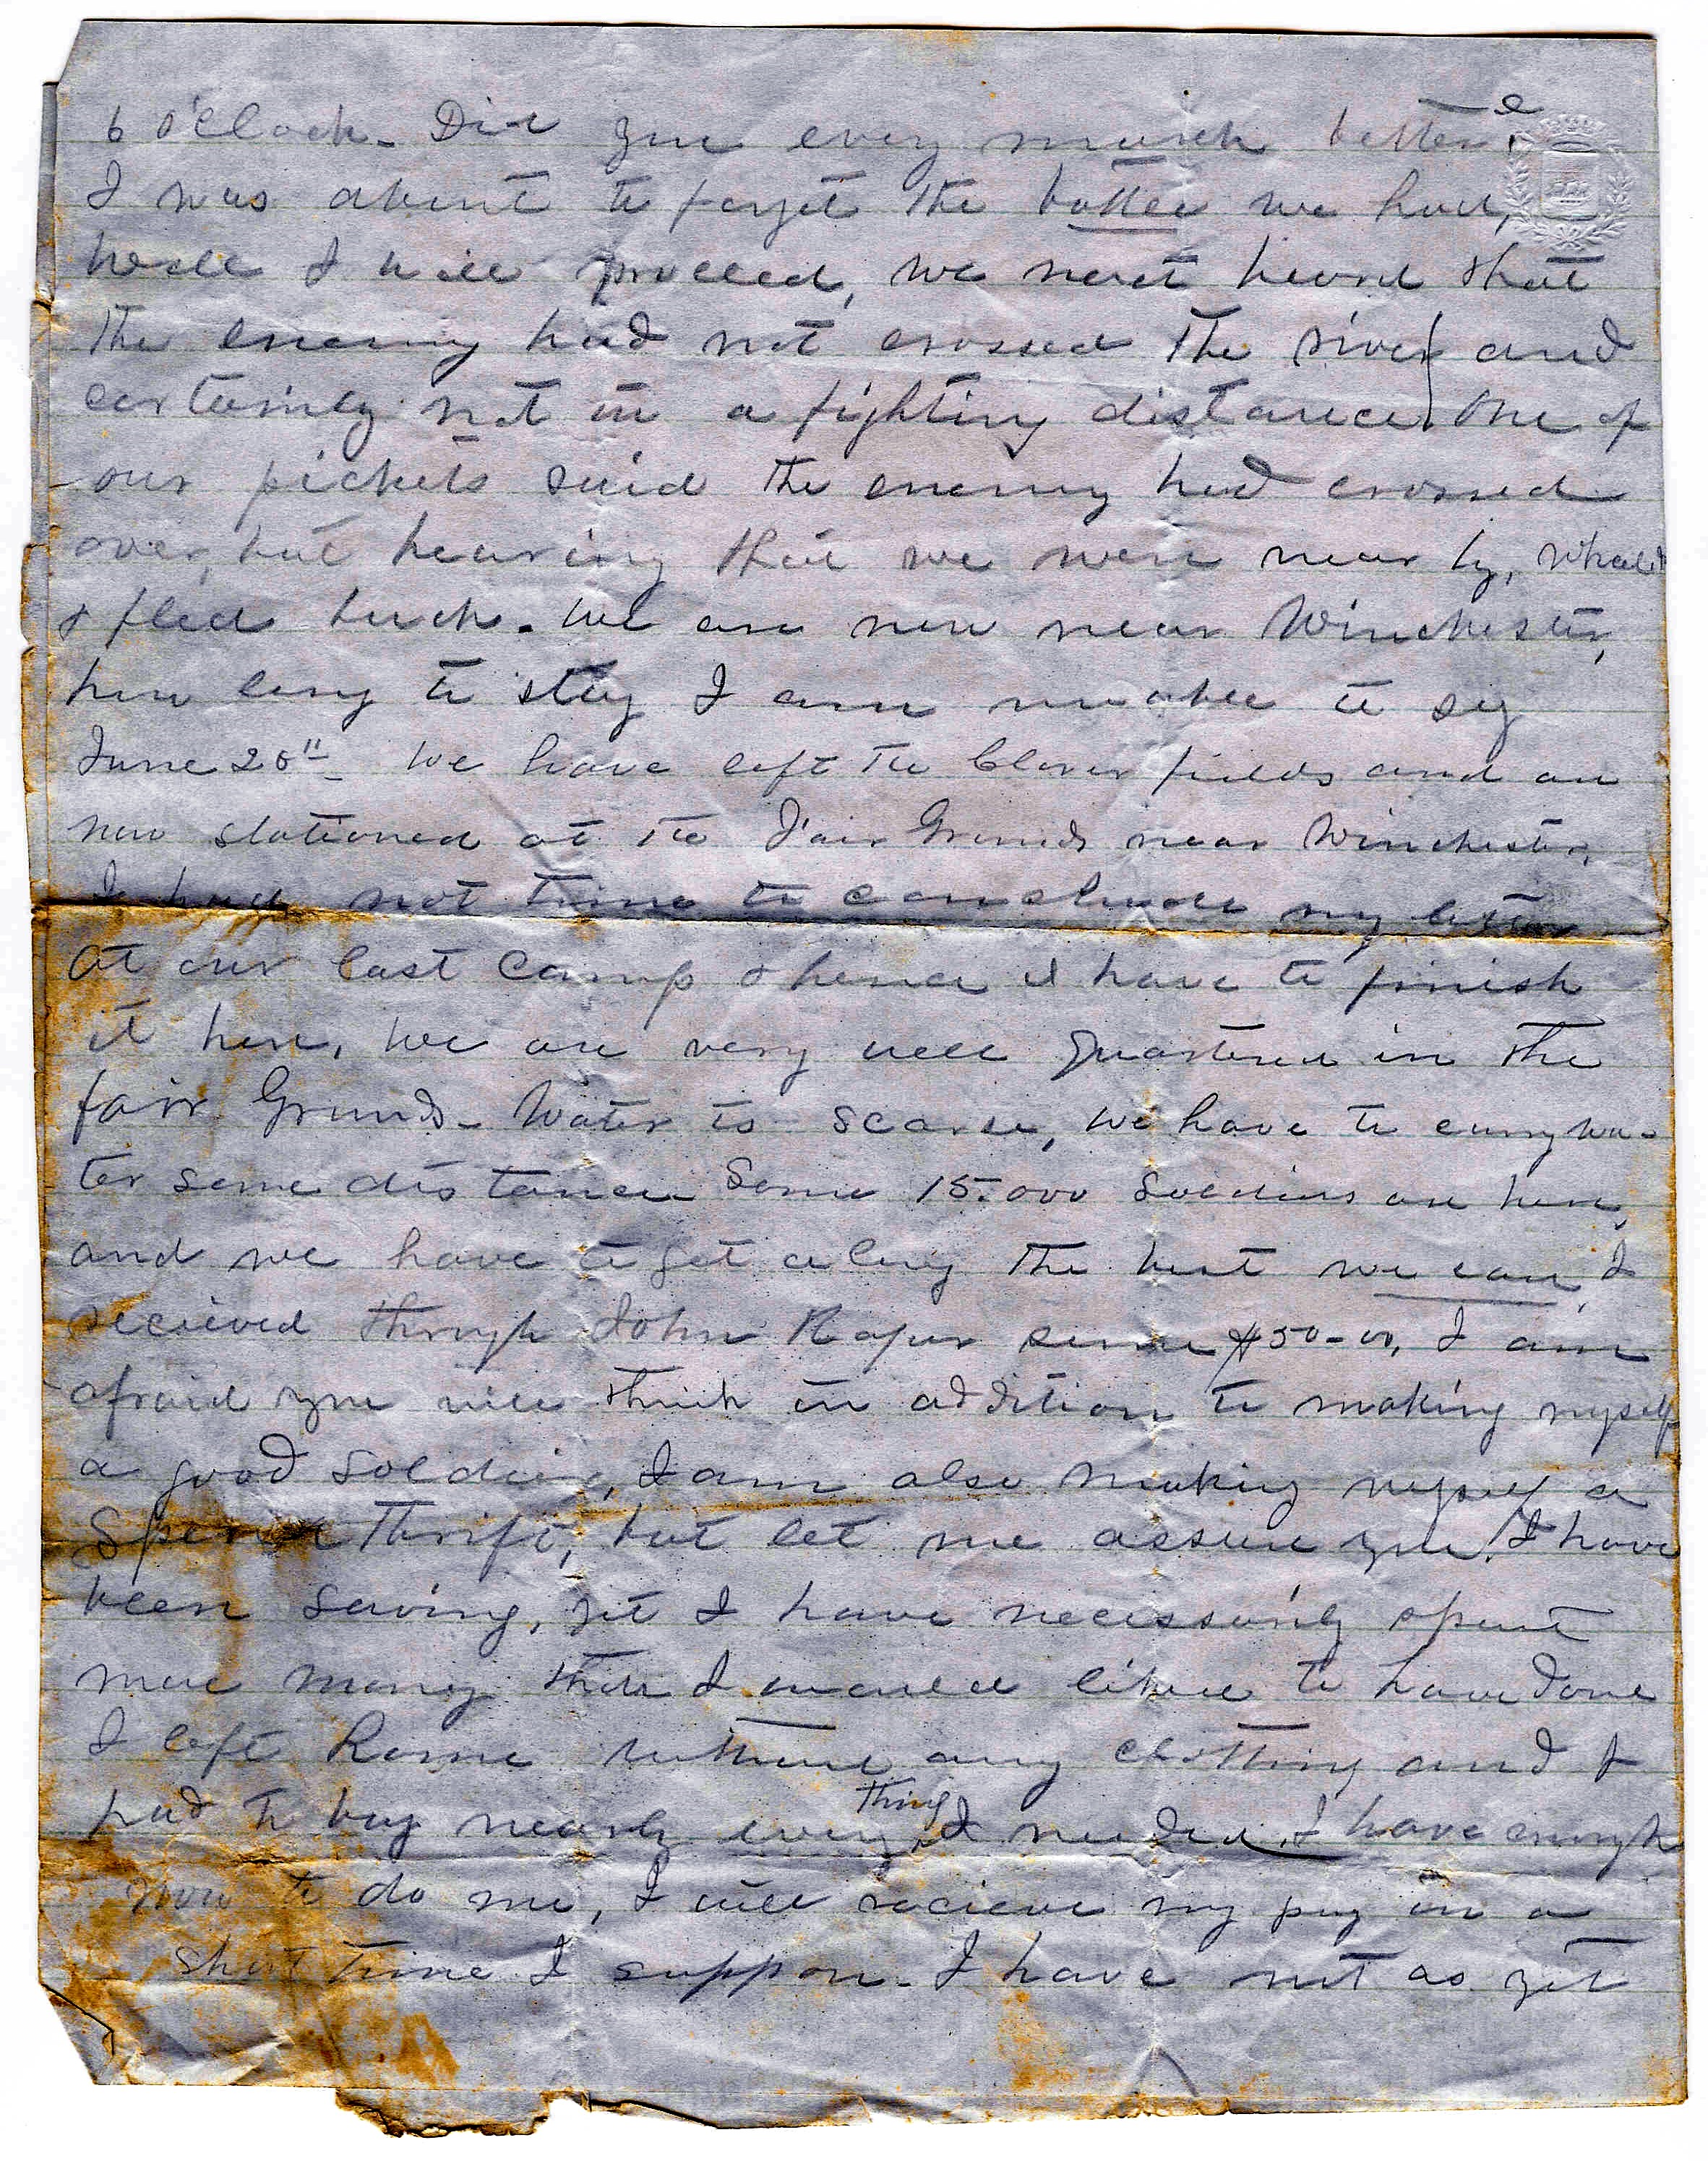 6 o'clock. Did you every march better?
I was about to forget the battle we had,
Well I will proceed, we next heard that
the enemy had not crossed the river and
certainly not in a fighting distance. One of
our pickets said the enemy had crossed
over, but hearing that we were near by, wheeled
& fled back. We are now near Winchester,
how long to stay I am unable to say
June 20th We have left the Clover fields and are
now stationed at the Fair Grounds near Winchester,
I had not time to conclude my letter
at our last camp & hence I have to finish
it here, We are very well Quartered in the
fair Grounds. Water is scarse, we have to carry wa-
ter some distance Some 15.000 Soldiers are here,
and we have to get along the best we can, I
recieved through John Roper some $50-00, I am
afraid you will think in addition to making myself
a good Soldier, I am also making myself a
Spend thrift, but let me assure you I have
been saving, yet I have necessarily spent
more money than I would liked to have done
I left Rome without any clothing and I
had to buy nearly every thing I needed. I have enough
now to do me, I will recieve my pay in a
short time I suppose. I have not as yet